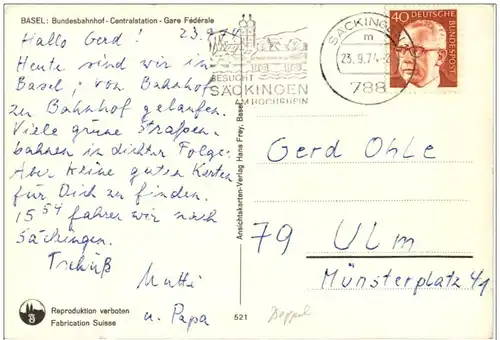 BASEL: Bundesbahnhof - Centralstation - Gare Fédérale
23.9.74
Hallo Gerd!
Heute sind wir in
Basel; von Bahnhof
zu Bahnhof gelaufen.
Viele grüne Straßen-
bahnen in dichter Folge.
Aber keine guten Karten
für Dich zu finden.
15 54 fahren wir nach
Säckingen.
Tschüß
Mutti
u. Papa
Reproduktion verboten
Fabrication Suisse
521
Doppel
Ansichtskarten-Verlag Hans Frey, Basel
BESUCHT
SÄCKINGEN
AM HOCHRHEIN
SÄCKINGEN
m
23.9.74
788
40
DEUTSCHE
BUNDESPOST
Gerd Ohle
79 Ulm
Münsterplatz 41